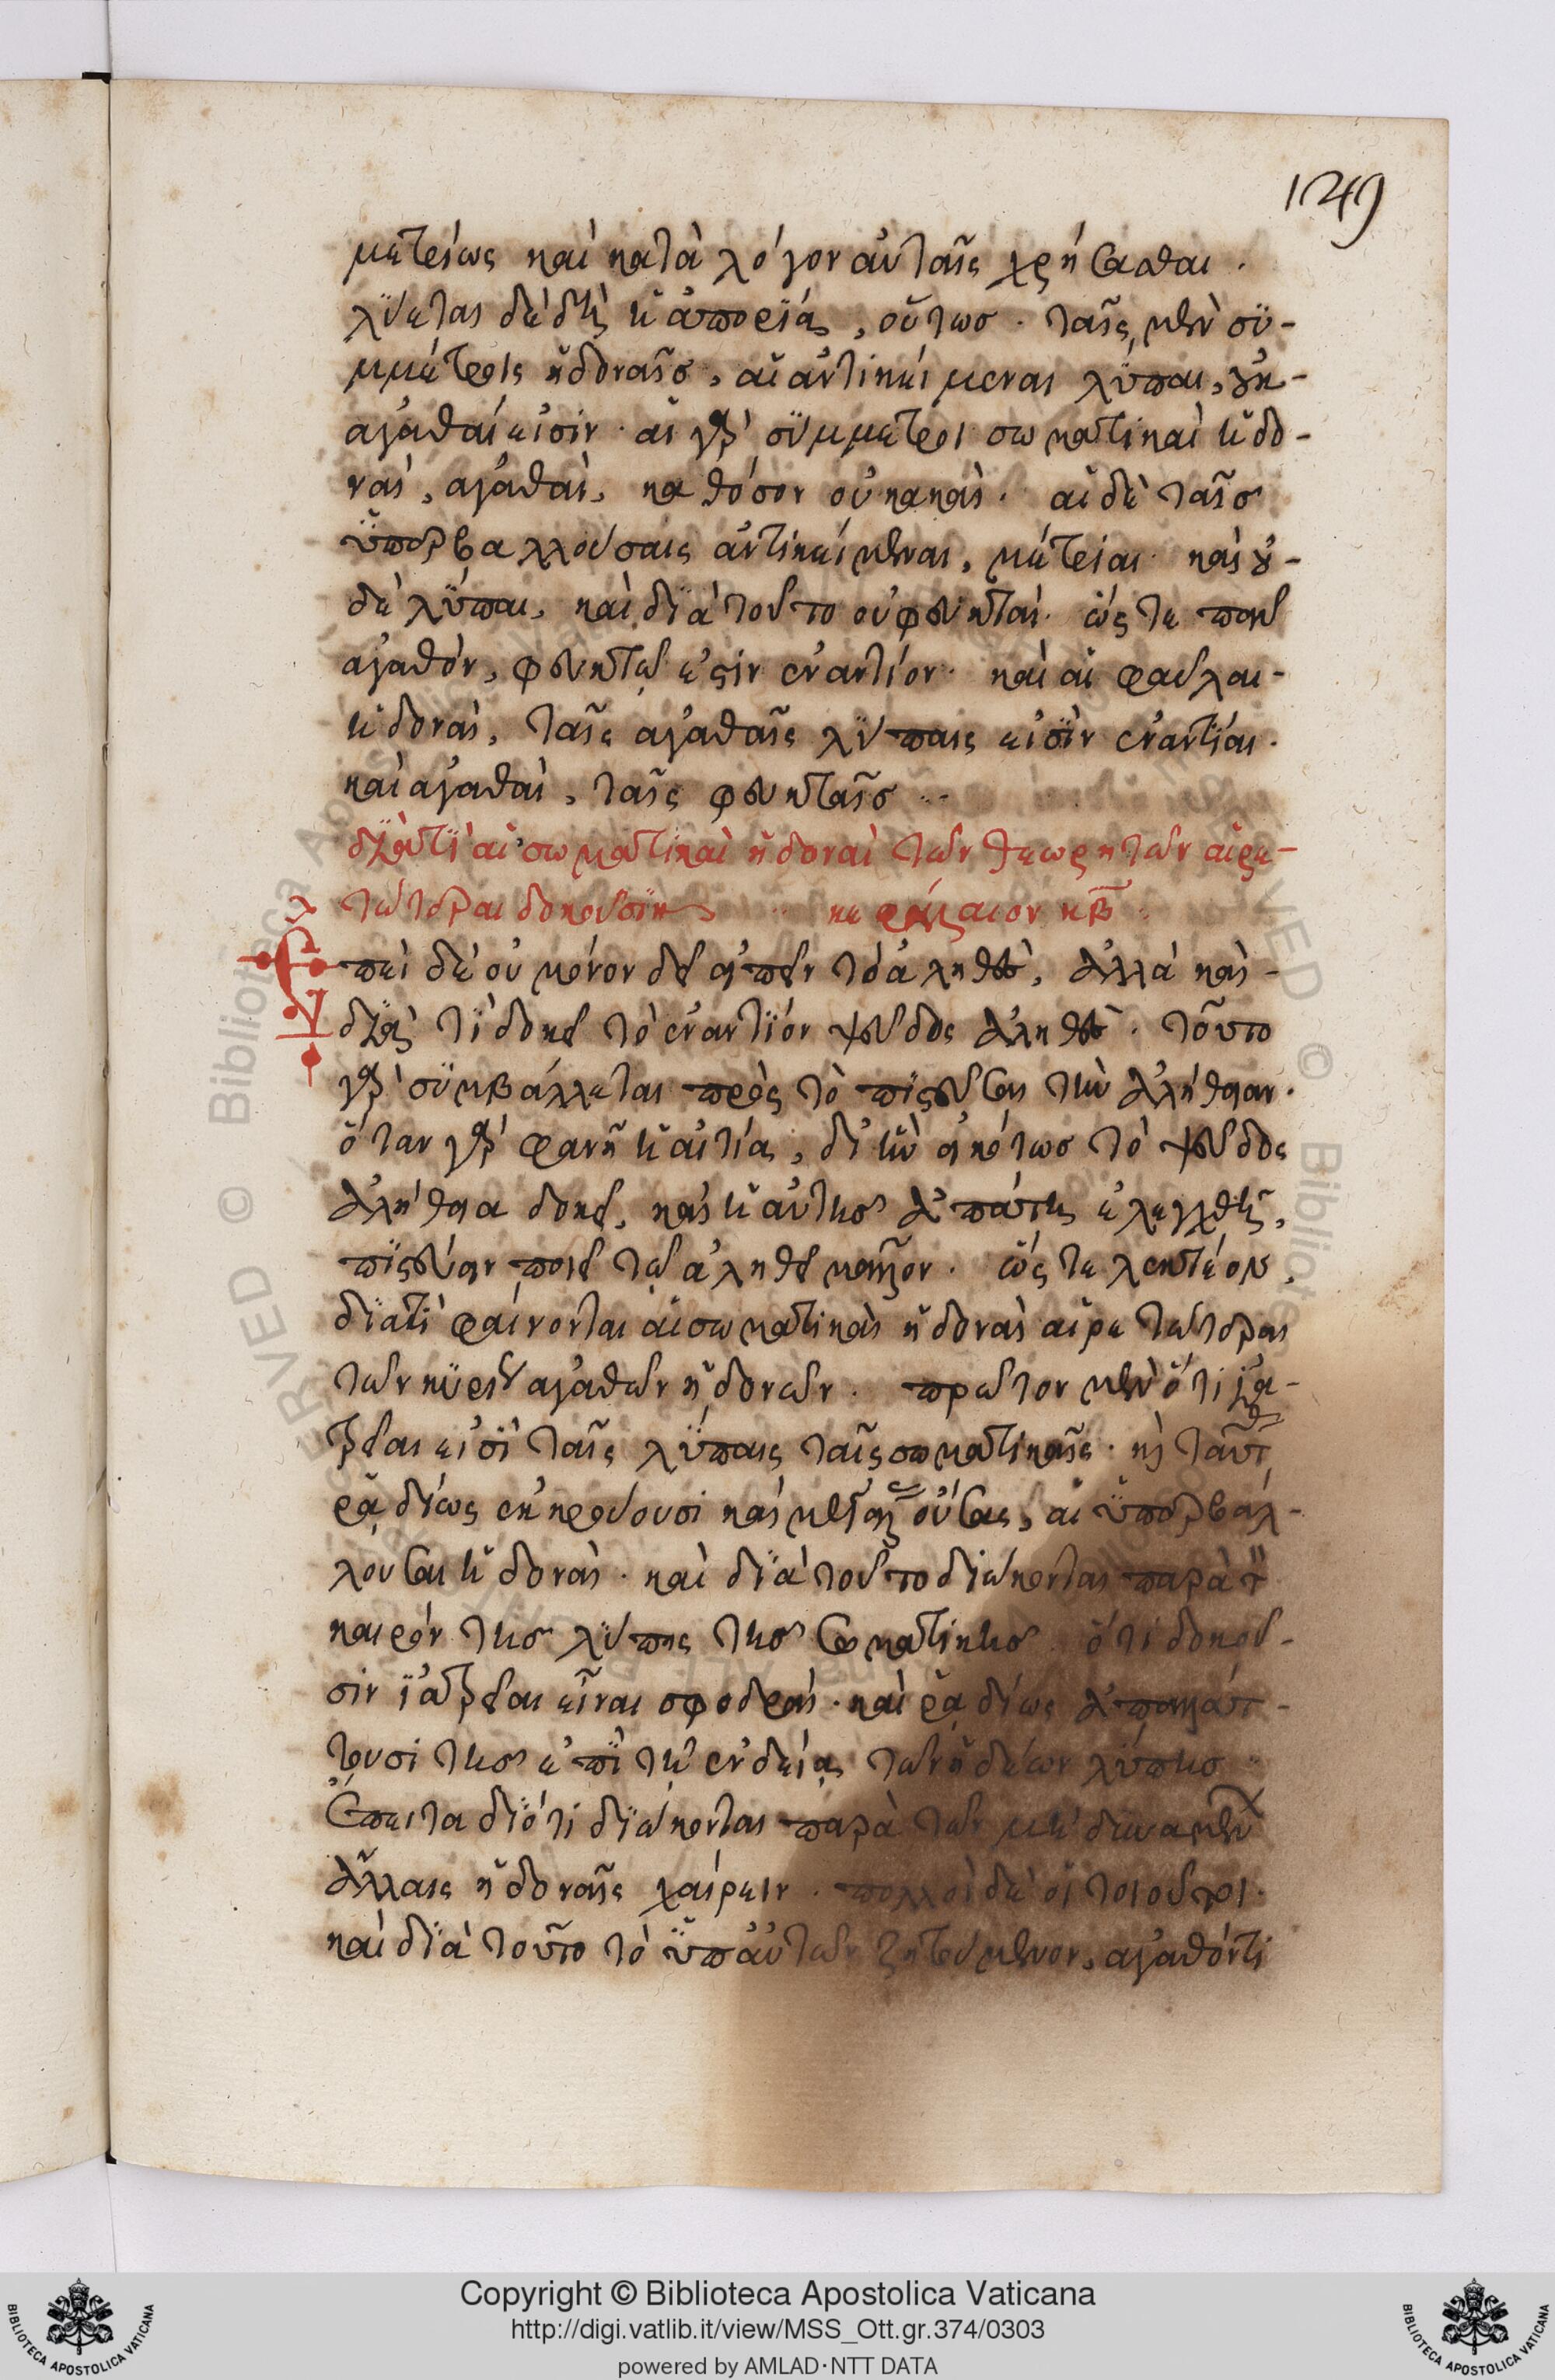 149
μετρίως καὶ κατὰ λόγον αὐταῖς χρήσασθαι.
λύεται δὲ δὴ ἡ ἀπορία, οὕτως. ταῖς μὲν συ-
μμέτροις ἡδοναῖς, αἱ ἀντικείμεναι λύπαι, οὐκ
ἀγαθαί εἰσιν. αἱ γὰρ σύμμετροι σωματικαὶ ἡδο-
ναὶ, ἀγαθαὶ, καθόσον οὐ κακαὶ. αἱ δὲ ταῖς
ὑπερβαλλούσαις ἀντικείμεναι, μέτριαι καὶ οὐ-
δὲ λύπαι, καὶ διὰ τοῦτο οὐ φευκταὶ. ὥστε παν
ἀγαθὸν, φευκτῷ ἐστὶν ἐναντίον. καὶ αἱ φαῦλαι
ἡδοναὶ, ταῖς ἀγαθαῖς λύπαις εἰσὶν ἐναντίαι.
καὶ ἀγαθαὶ, ταῖς φευκταῖς
διατὶ αἱ σωματικαὶ ἡδοναὶ τῶν θεωρητῶν αἱρε-
τώτεραι δοκοῦσιν κεφάλαιον κβ
Ἐπεὶ δὲ οὐ μόνον δεῖ εἰπεῖν τὸ ἀληθὲς, ἀλλὰ καὶ
διὰ τὶ δοκεῖ τὸ ἐναντίον ψεῦδος ἀληθὲς. τοῦτο
γὰρ συμβάλλεται πρὸς τὸ πιστεῦσαι τὴν ἀλήθειαν.
ὅταν γὰρ φανῇ ἡ αἰτία, δι' ἣν εἰκότως τὸ ψεῦδος
ἀλήθεια δοκεῖ, καὶ ἡ αὐτῆς ἀπάτη ἐλεγχθῇ,
πιστεύειν ποιεῖ τῷ ἀληθεῖ μᾶλλον. ὥστε λεκτέον,
διατὶ φαίνονται αἱ σωματικαὶ ἡδοναὶ αἱρετώτεραι
τῶν κυρίως ἀγαθῶν ἡδονῶν. πρῶτον μὲν ὅτι ἰα-
τρεῖαι εἰσὶ ταῖς λύπαις ταῖς σωματικαῖς. καὶ ταύτας
ῥᾳδίως ἐκκρούουσι καὶ μεγάλας οὔσας, αἱ ὑπερβάλ-
λουσαι ἡδοναὶ. καὶ διὰ τοῦτο διώκονται παρὰ τὸν
καιρὸν τῆς λύπης τῆς σωματικῆς. ὅτι δοκοῦ-
σιν ἰατρεῖαι εἶναι σφοδραὶ. καὶ ῥᾳδίως ἀπαλλάτ-
τουσι τῆς ἐπὶ τῇ ἐνδείᾳ τῶν ἡδέων λύπης
Ἔπειτα διότι διώκονται παρὰ τῶν μὴ δυναμένων
ἄλλαις ἡδοναῖς χαίρειν. πολλοὶ δὲ οἱ τοιοῦτοι.
καὶ διὰ τοῦτο τὸ ὑπ' αὐτῶν ζητούμενον, ἀγαθόν τι
Copyright © Biblioteca Apostolica Vaticana
http://digi.vatlib.it/view/MSS_Ott.gr.374/0303
powered by AMLAD·NTT DATA
BIBLIOTECA APOSTOLICA VATICANA
BIBLIOTECA APOSTOLICA VATICANA